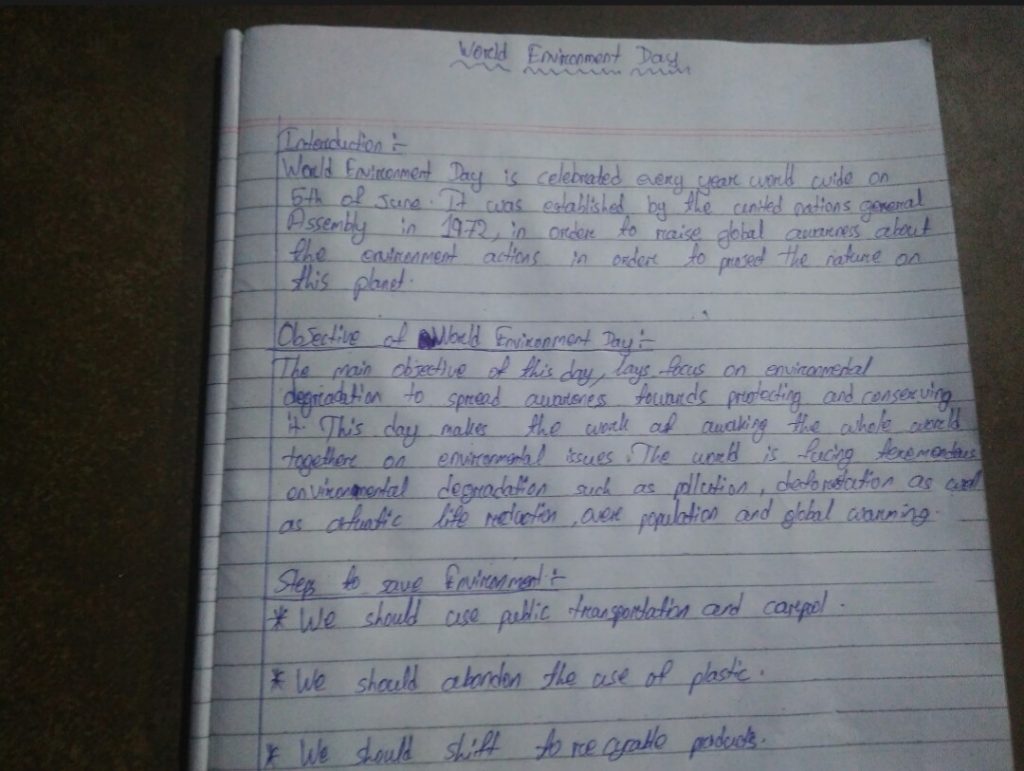 World Environment Day
Introduction :-
World Environment Day is celebrated every year world wide on
5th of June. It was established by the united nations general
Assembly in 1972, in order to raise global awarness about
the environment actions in order to the nature on
this planet.
Objective of World Environment Day :-
The main objective of this day, lays focus on environmental
degradation to spread awareness towards protecting and conserving
it. This day makes the work of awaking the whole world
together on environmental issues. The world is facing
environmental degradation such as pollution, as well
as life reduction, over population and global warming.
Steps to save Environment :-
* We should use public transportation and carpool.
* We should abandon the use of plastic.
* We should shift to products.